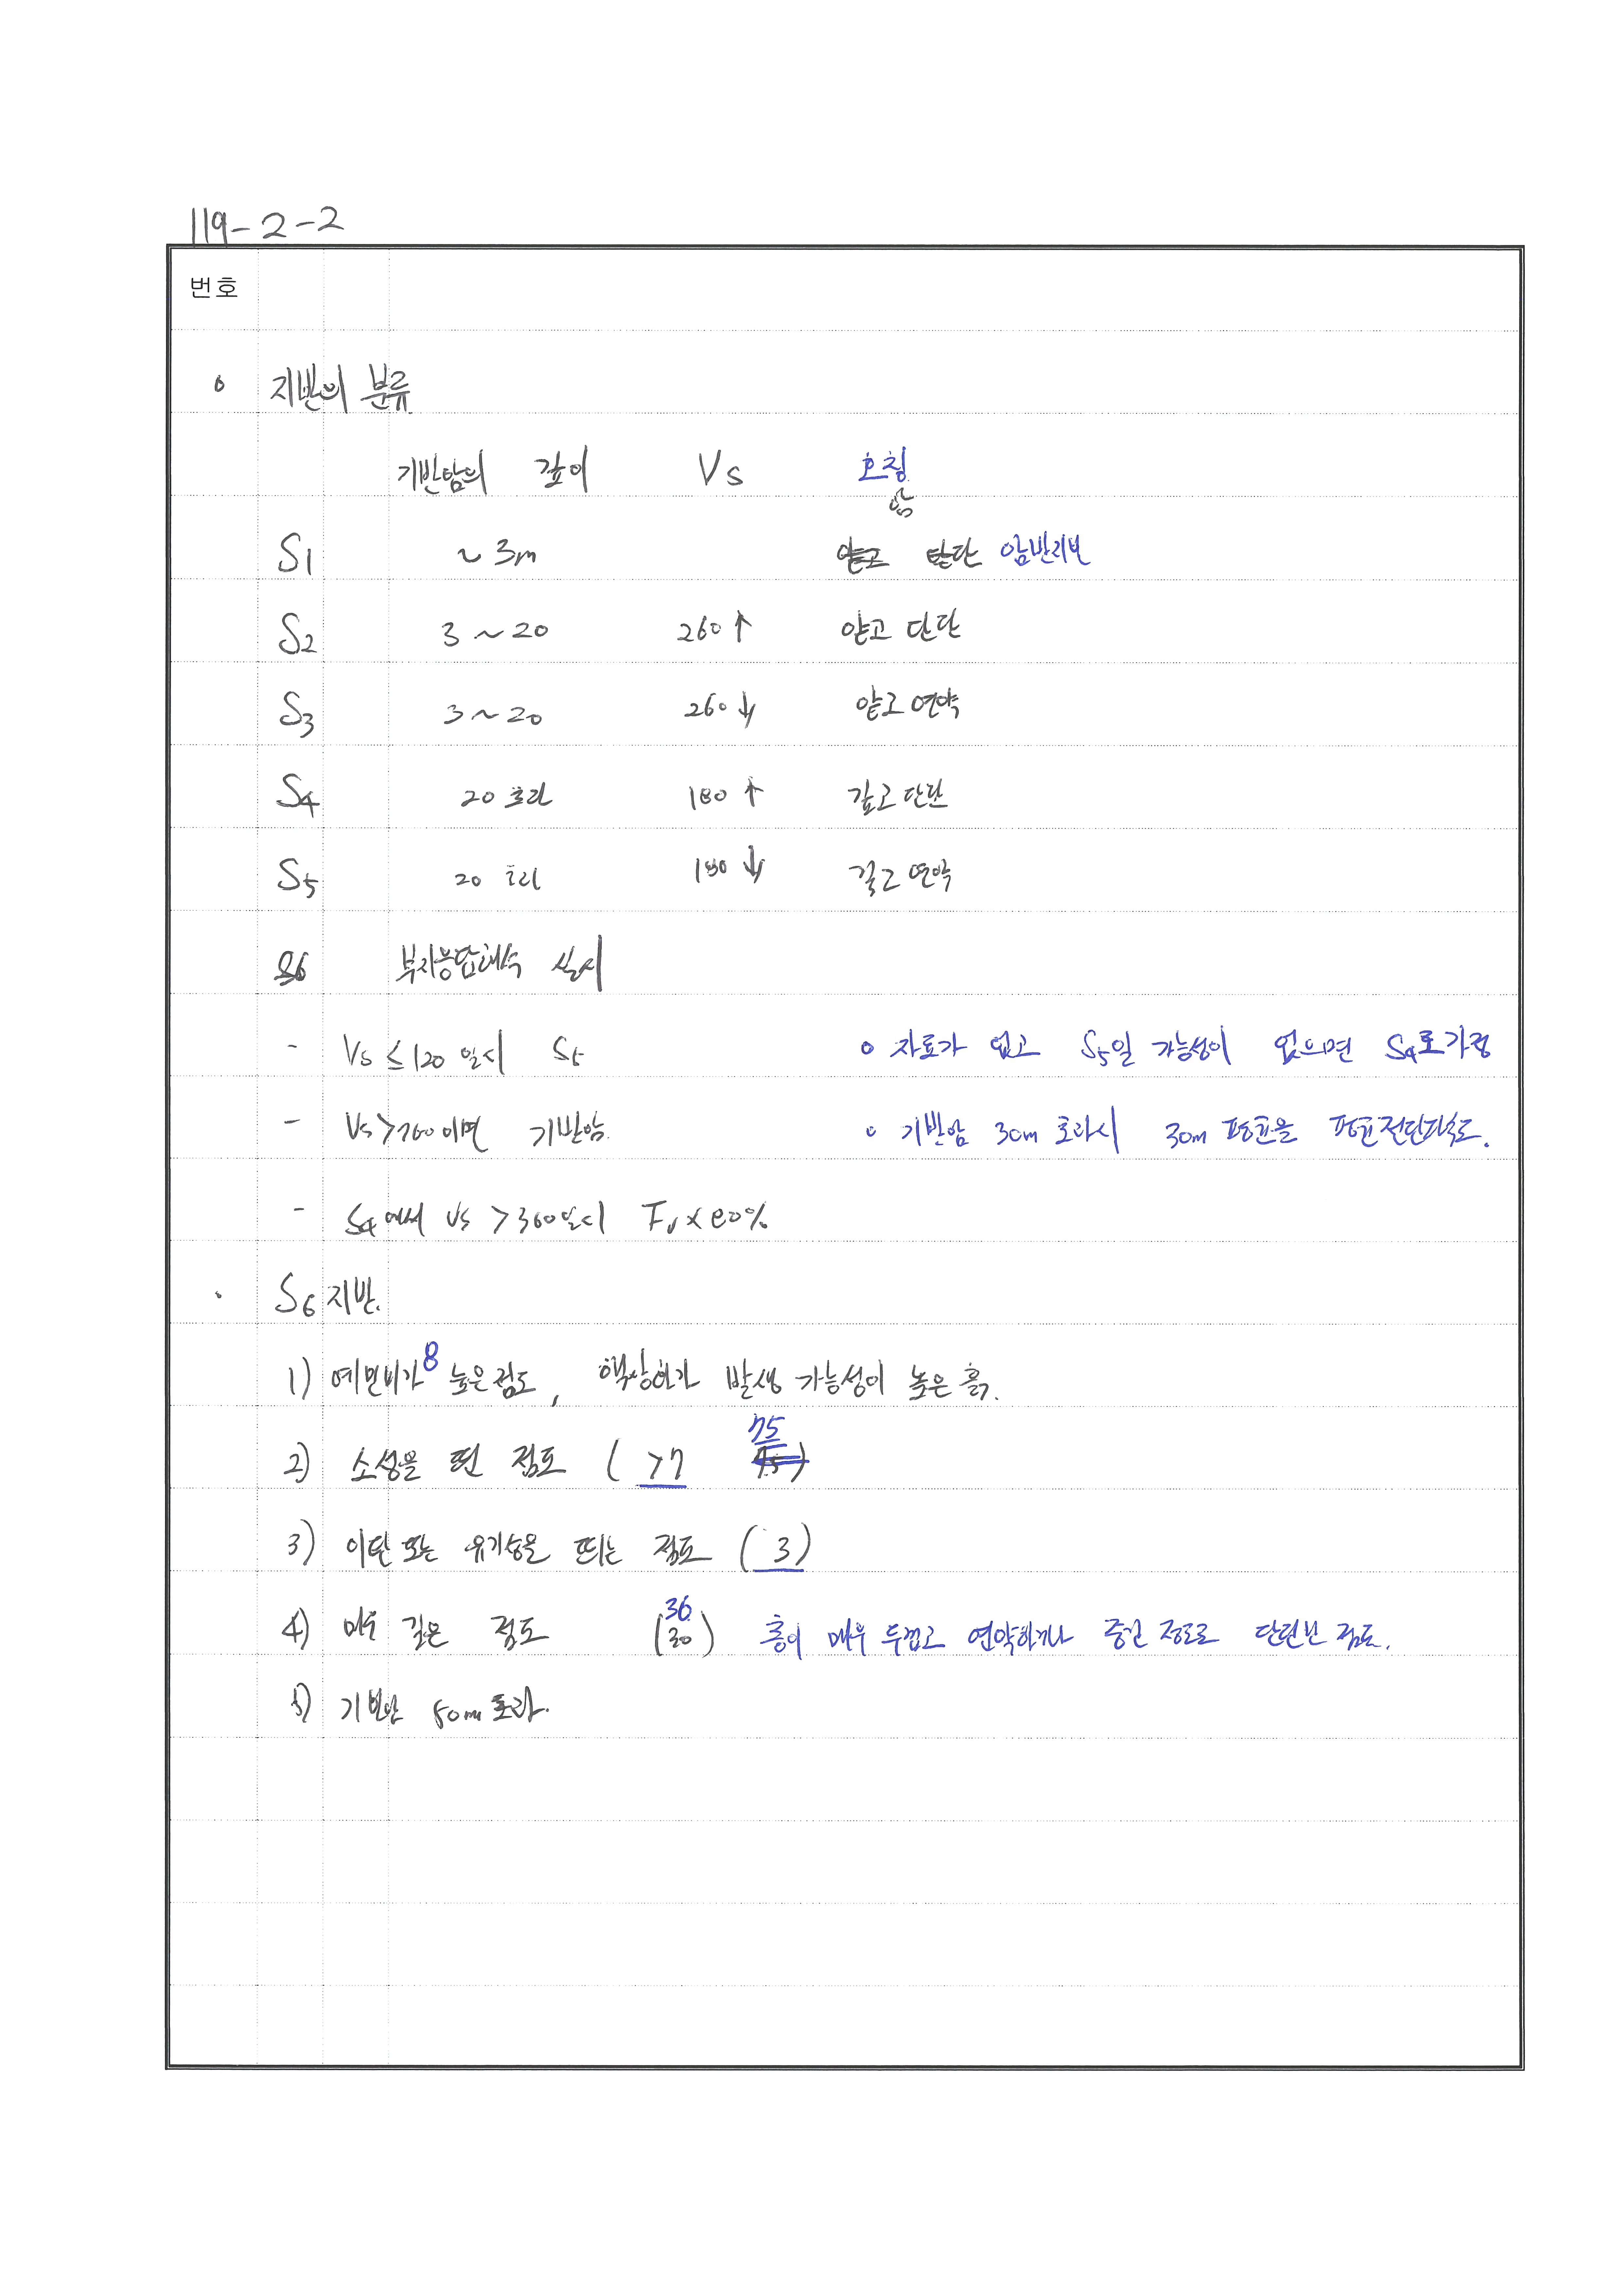 119-2-2
번호
o 지반의 분류
기반암의 깊이 Vs 호칭
암
S1 ~3m 단 암반지반
S2 3~20 260↑ 얕고 단단
S3 3~20 260↓ 얕고 연약
S4 20 초과 180↑ 깊고 단단
S5 20 초과 180↓ 깊고 연약
S6 부지응답해석 실시
- Vs ≤ 120 일시 S5
o 자료가 없고 S5일 가능성이 없으면 S4로 가정
- Vs > 760 이면 기반암
o 기반암 30m 초과시 30m 평균을 평균전단파속도.
- S4에서 Vs > 360일시 Fv x 80%
· S6 지반.
1) 예민비가 8 높은 점토, 액상화가 발생 가능성이 높은 흙.
2) 소성을 띤 점토 ( >7 75 )
3) 이탄 또는 유기성을 띄는 점토 ( 3 )
4) 매우 깊은 점토 (30) 36 층이 매우 두껍고 연약하거나 중간 정도로 단단한 점토.
5) 기반암 50m 초과.